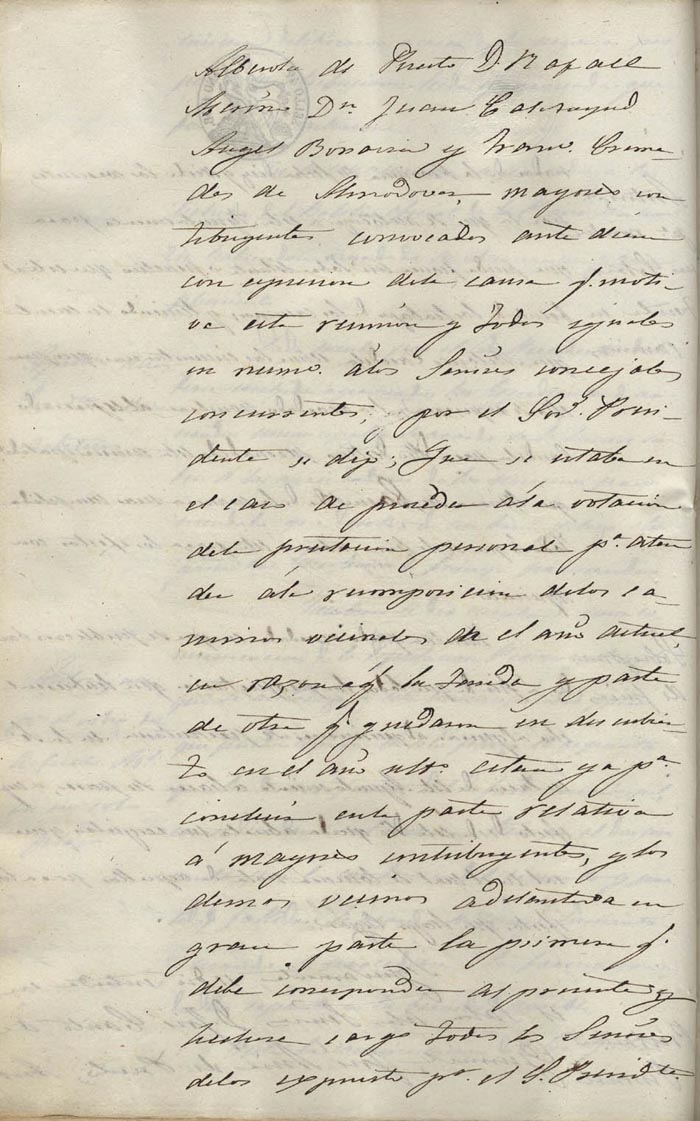 Alberola de Prieto D. Rafael
Merino Dn. Juan Calatayud
Angel Bonacia y Franco.
des de Almodovar, mayores con
tribuyentes convocados ante diem
con espresion dela causa q. moti-
va esta reunion y todos iguales
en numo. álos Señores concejales
concurrentes; por el Sor. Presi-
dente se dijo; Que se estaba en
el caso de proceder ála votacion
dela prestacion personal pa. aten
der ála recomposicion delos ca-
minos vecinales de el año actual,
en razon á q. la tanda y parte
de otra q. quedaron en descubier
to en el año ulto. estan ya pa.
concluir enla parte relativa
á mayores contribuyentes, y los
demas vecinos adelantada en
gran parte la primera q.
debe corresponder al presente y
hechose cargo todos los Señores
delo espuesto pr. el S. Presidte.